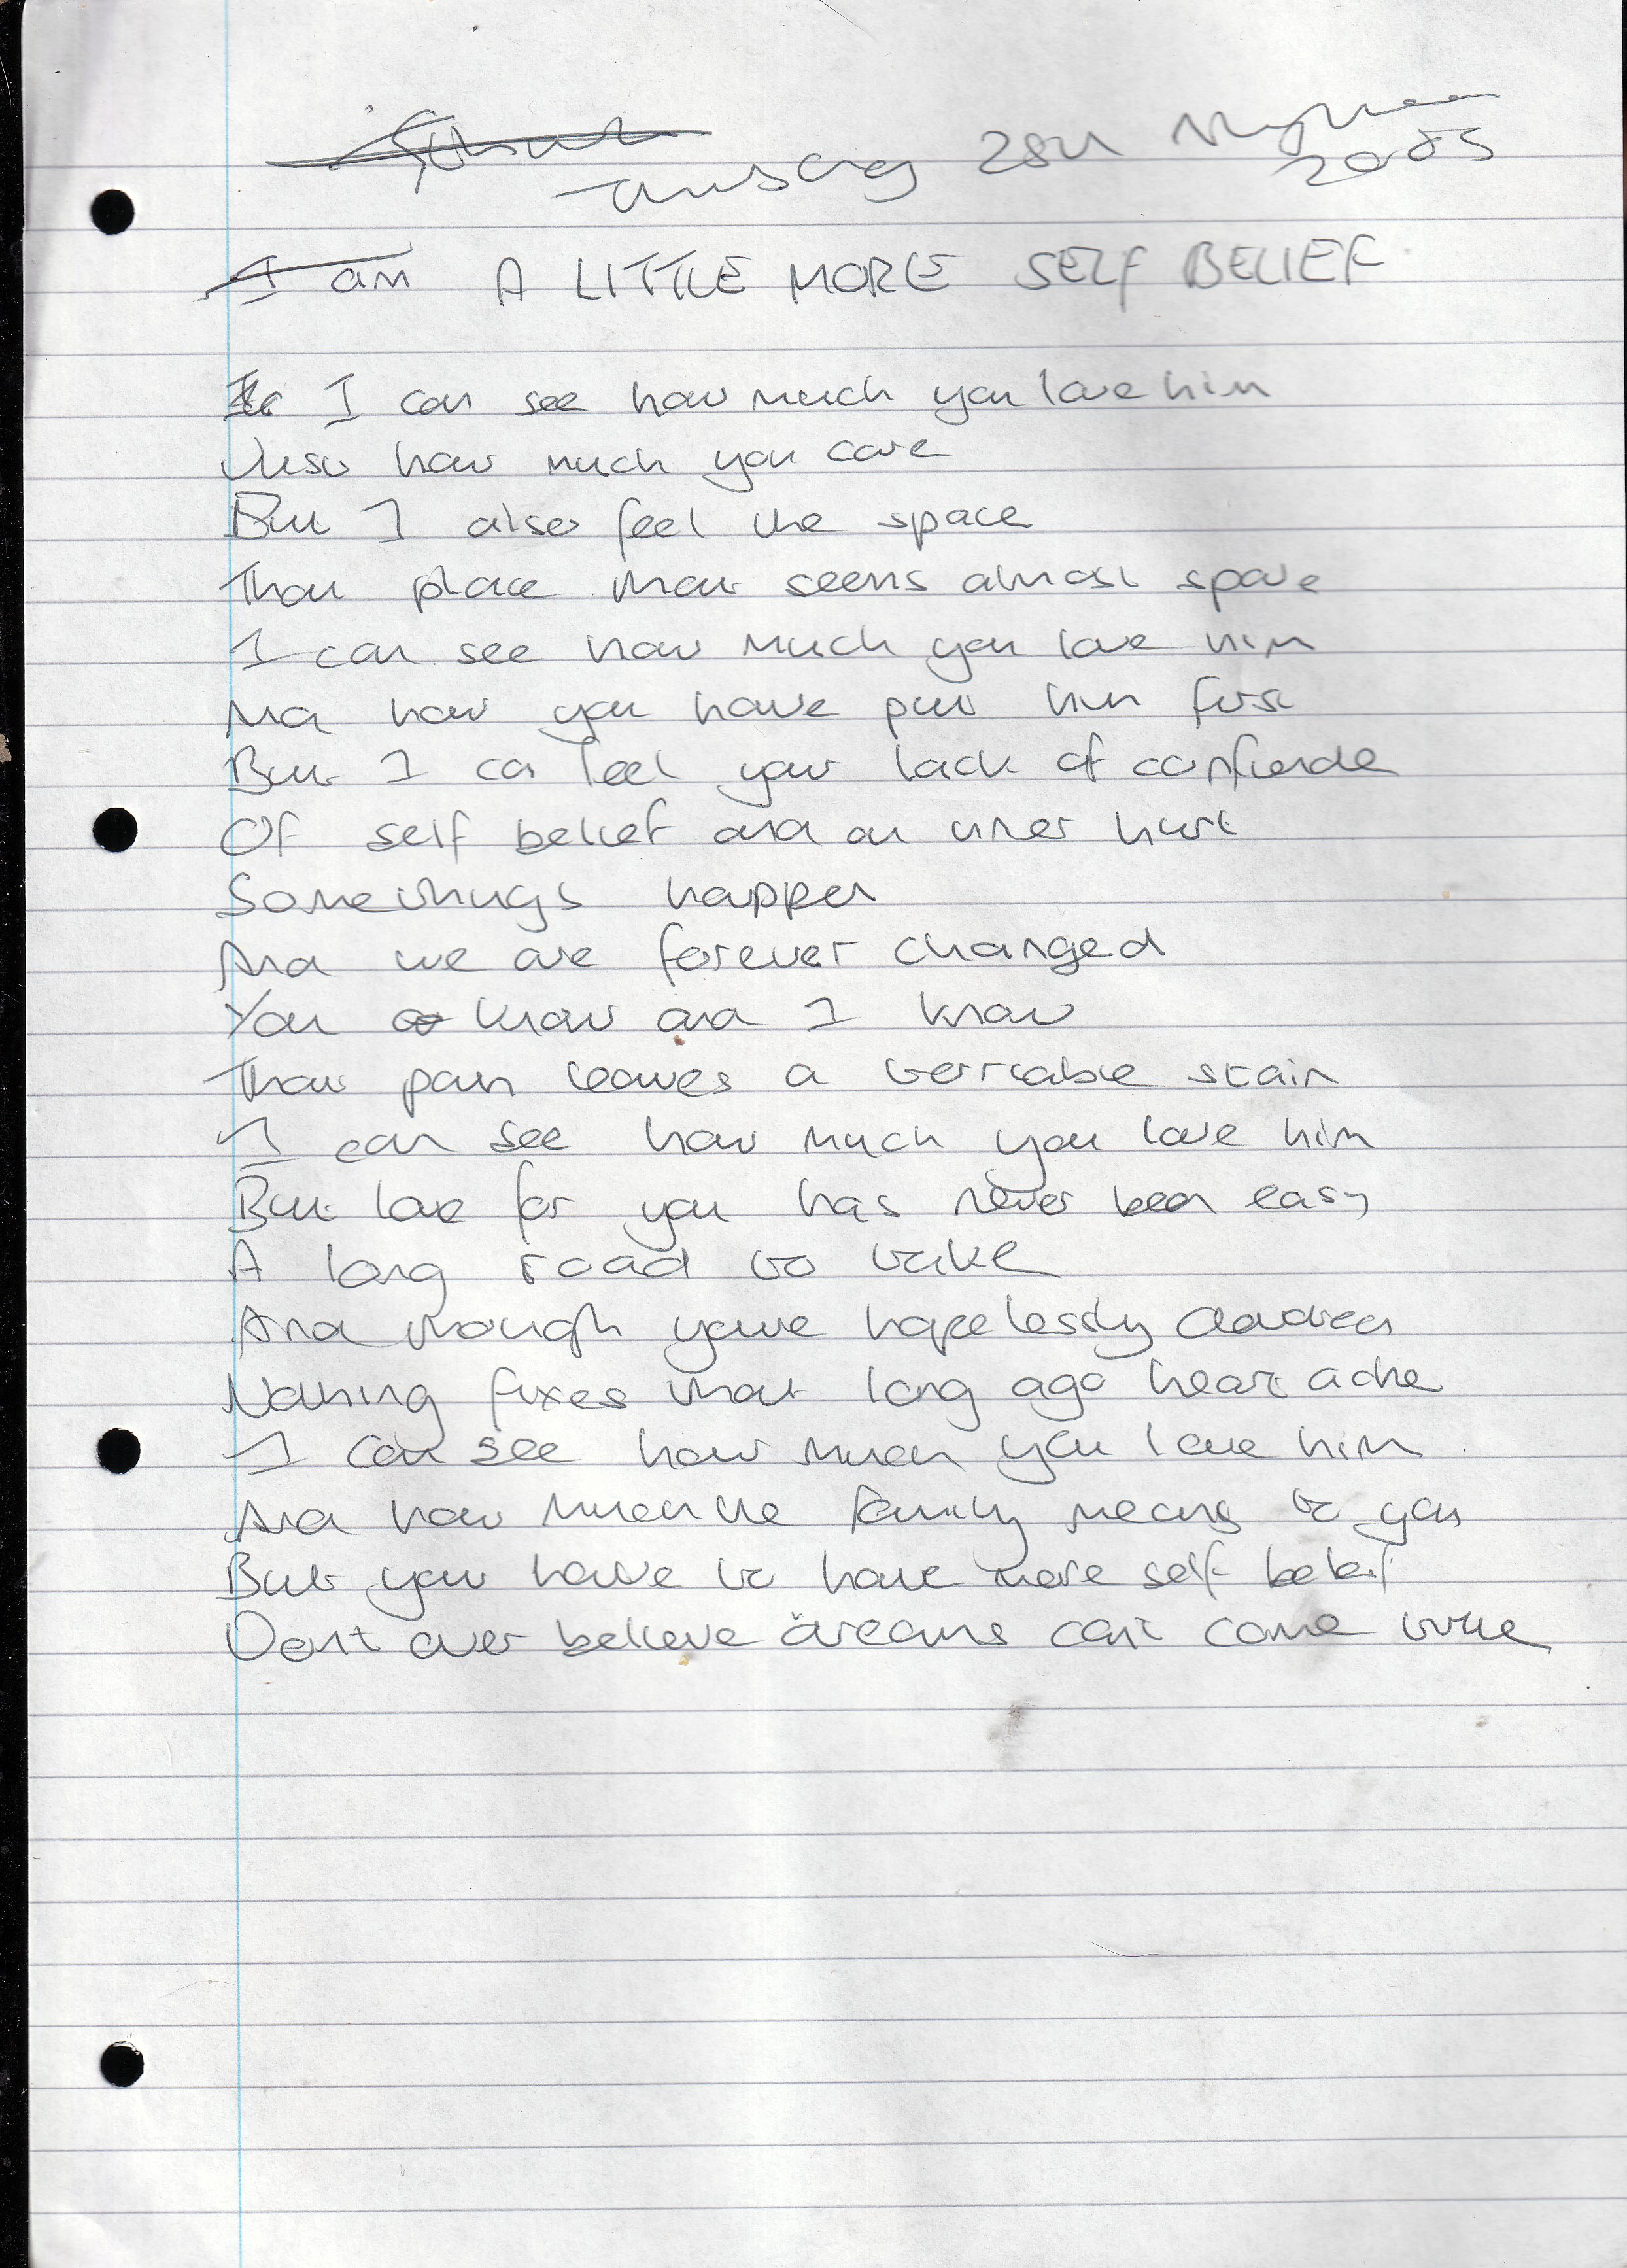 2005
I am A LITTLE MORE SELF BELIEF
I can see how much you love him
Just how much you care
But I also feel the space
That place that seems almost spare
I can see how much you love him
And how you have put him first
But I ca feel your lack of
Of self belief and an inner hurt
Somethings happen
And we are forever changed
You know and I know
That pain leaves a stain
I can see how much you love him
But love for you has never been easy
A long road to take
And though youve hopelessly
Nothing fixes that long ago heart ache
I can see how much you love him
And how much the family means to you
But you have to have more self belief
Dont ever believe dreams cant come true